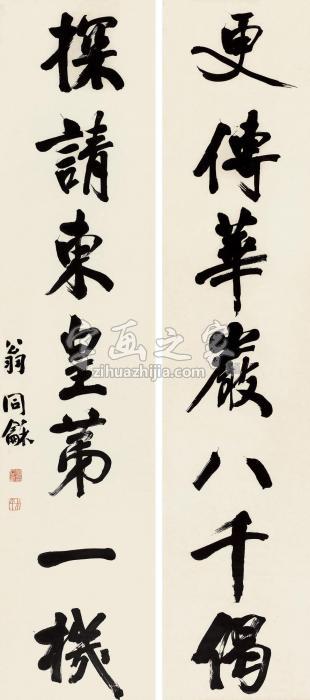 更傳華嚴八千偈
探請東皇苐一機
翁同龢
字画之家
zihuazhijia.com